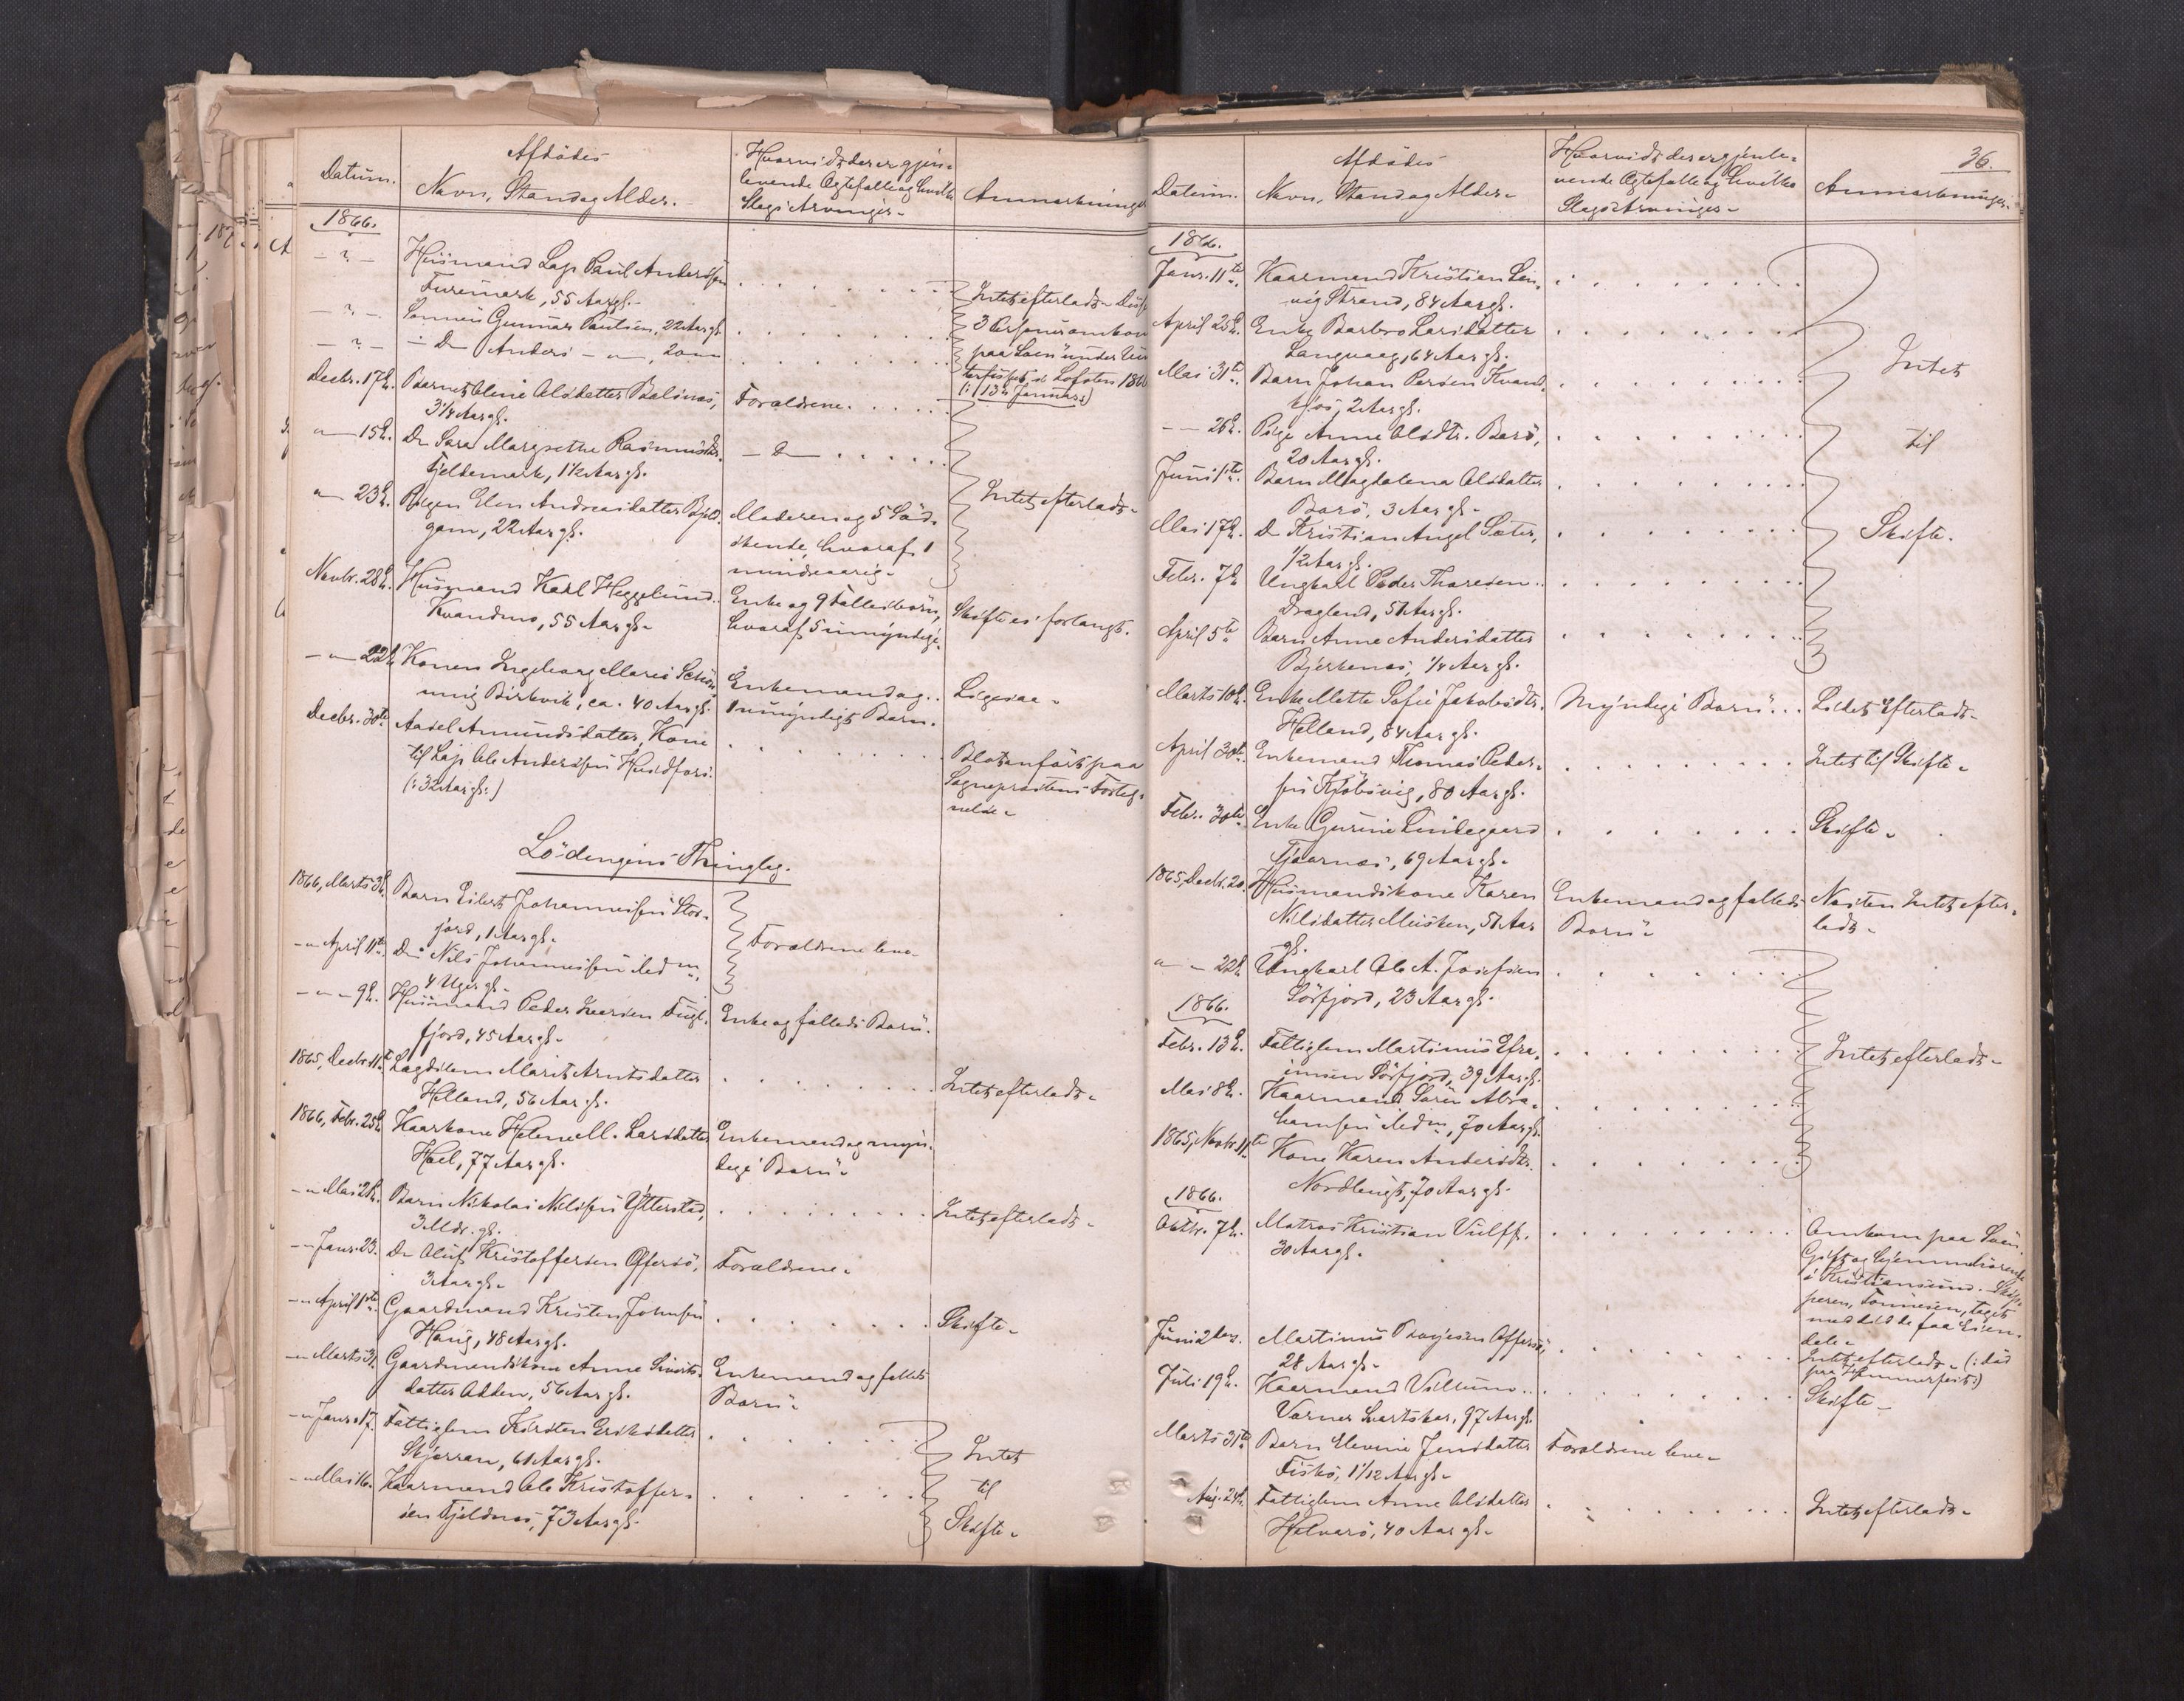 Datum.
Afdødes
Navn, Stand og Alder.
Hvorvidt der er gjen-
levende Ægtefælle og hvilke
Slags Arvinger.
Anmærkninger
1866.
- ? -
Huusmand Lap Paul Andersen
55 Aar gl.
Intet efterladt.
- ? -
Sønnen Gunnar Paulsen, 22 Aar gl.
3 Personer omkom
- ? -
- Do Anders - " , 20 "
paa Søen under
Lofoten 1866
(: 13de Januar :)
Decbr. 17de.
Barnet Oline Olsdatter Balsnes,
3 1/4 Aar gl.
Forældrene.
" 15de.
Do Sara Margrethe Rasmusdtr.
Fjeldemark, 1 1/2 Aar gl.
- Do -
" 23de.
Pigen Elen Andreasdatter
22 Aar gl.
Moderen og 5 Sød-
skende, hvoraf 1
mindreaarig.
Intet efterladt.
Novbr. 28de.
Huusmand Karl Heggelund
Kvandmo, 55 Aar gl.
Enke og 9 Fællesbørn,
hvoraf 5 umyndige.
Skifte ei forlangt.
- " - 22de
Konen Ingeborg Marie Schøn-
ning Birkvik, ca. 40 Aar gl.
Enkemand og
1 umyndigt Barn.
Ligesaa.
Decbr. 30te
Aasel Amundsdatter, Kone
til Lap Ole Andersen
(: 32 Aar gl. :)
Blot anført paa
Sognepræstens Forteg-
nelse.
Lødingens Thinglag.
1866, Marts 3de.
Barn Eilert Johannessen Stor-
fjord, 1 Aar gl.
- " April 11te
Do Nils Johannessen ibdm,
4 Uger gl.
Forældrene leve.
- " - " 9de.
Huusmand Peder Iversen Fugl-
fjord, 45 Aar gl.
Enke og fælleds Børn.
1865, Decbr. 11te
Lægdslem Marit Arntsdatter
Helland, 56 Aar gl.
Intet efterladt.
1866, Febr. 25de.
Kaarkone Helene M. Larsdatter
Hoel, 77 Aar gl.
Enkemand og myn-
dige Børn.
- " Mai 2de.
Barn Nikolai Nilsen Ytterstad,
3 Mdr. gl.
Intet efterladt.
- " Janr. 23.
Do Oluf Kristoffersen Offersø,
3 Aar gl.
Forældrene.
- " April 1ste
Gaardmand Kristen Johnsen
Haug, 48 Aar gl.
Skifte.
- " Marts 31.
Gaardmandskone Anne Siverts-
datter 56 Aar gl.
Enkemand og fælleds
Børn.
- " Janr. 17.
Fattiglem Kirsten Eriksdatter
61 Aar gl.
- " Mai 16.
Kaarmand Ole Kristoffer-
sen Fjeldnes, 73 Aar gl.
Intet
til
Skifte.
36.
Datum.
Afdødes
Navn, Stand og Alder.
Hvorvidt der er gjenle-
vende Ægtefælle og hvilke
Slags Arvinger.
Anmærkninger.
1866.
Janr. 11te.
Kaarmand Kristian
Strand, 84 Aar gl.
April 25de.
Enke Barbro Larsdatter
Langvaag, 64 Aar gl.
Mai 31te.
Barn Johan Persen Kvand-
2 Aar gl.
Intet
- - 26de.
Pige Anne Olsdtr. Barø,
20 Aar gl.
til
Juni 1ste.
Barn Magdalena Olsdatter
Barø, 3 Aar gl.
Mai 17de.
Do Kristian Angel Sæter,
1/2 Aar gl.
Skifte.
Febr. 7de
Ungkarl Peder Thoresen
Dragland, 51 Aar gl.
April 5te
Barn Anne Andersdatter
Bjerkenes, 1/4 Aar gl.
Marts 10de.
Enke Mette Sofie Jakobsdtr.
Helland, 84 Aar gl.
Myndige Børn.
Lidet Efterladt.
April 30te.
Enkemand Thomas Peder-
sen Kjøbsvig, 80 Aar gl.
Intet til Skifte.
Febr. 30te.
Enke Gurine Lindegaard
69 Aar gl.
Skifte.
1865, Decbr. 20.
Huusmandskone Karen
Nilsdatter Musken, 51 Aar
gl.
Enkemand og fælleds
Børn.
Næsten Intet efter-
ladt.
" " 22de
Ungkarl Ole A. Josefsen
Sørfjord, 23 Aar gl.
1866.
Febr. 13de.
Fattiglem Martinus Efra-
imsen Sørfjord, 39 Aar gl.
Intet efterladt.
Mai 8de.
Kaarmand Søren Abra-
hamsen ibdm, 70 Aar gl.
1865, Novbr. 11te
Kone Karen Andersdtr.
Nordbugt, 70 Aar gl.
1866.
Oktbr. 7de.
Matros Kristian Vulff,
30 Aar gl.
Omkom paa Søen.
Gift og hjemmehørende
i Kristiansund. Skip-
peren, Tønnesen, taget
med det de faa Eien-
dele.
Juni 2den.
Martinus Offersø,
28 Aar gl.
Intet efterladt. (: død
paa Hammerfest :)
Juli 19de.
Kaarmand Villum
Varner Svartskar, 97 Aar gl.
Skifte.
Marts 31te.
Barn Elevine Jensdatter
Fiskø, 1 1/12 Aar gl.
Forældrene leve.
Aug. 24de.
Fattiglem Anne Olsdatter
Helvarø, 40 Aar gl.
Intet efterladt.